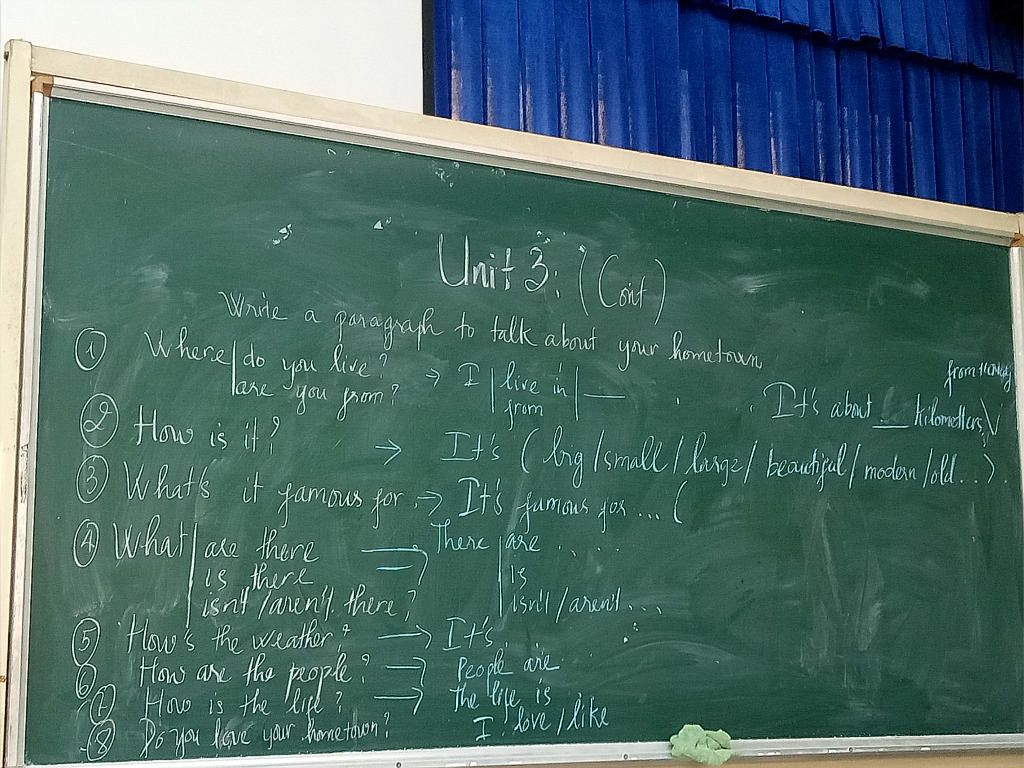 Unit 3: (Cont)
Write a paragraph to talk about your hometown.
① Where do you live? → I live in ___ . It's about ___ kilometters
are you from? from
② How is it? → It's (big/small/large/beautiful/modern/old..).
③ What's it famous for. → It's famous for ... (
④ What are there → There are ....
is there is
isn't/aren't there? isn't/aren't...
⑤ How's the weather? → It's
⑥ How are the people? → People are
⑦ How is the life? → the life is
⑧ Do you love your hometown? I love/like